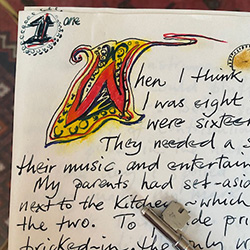 1 one
When I think
I was eight
were sixteen
They needed a s
their music, and entertain
My parents had set-aside
next to the Kitchen ~ which
the two. To